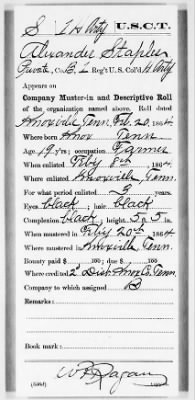 S | 1 H Arty | U.S.C.T.
Alexander Staples
Private, Co. B, 1 Reg't U. S. Col'd H. Arty
Appears on
Company Muster-in and Descriptive Roll
of the organization named above. Roll dated
Knoxville Tenn. Feb. 20, 1864
Where born Knox Tenn
Age 19 y'rs; occupation Farmer
When enlisted Feby 8th, 1864.
Where enlisted Knoxville, Tenn.
For what period enlisted 3 years.
Eyes black; hair black
Complexion black; height 5 ft. 5 in.
When mustered in Feby 20th, 1864
Where mustered in Knoxville, Tenn.
Bounty paid $ 100; due $ 100
Where credited 2" Dist. Knox Co. Tenn.
Company to which assigned B
Remarks:
Book mark:
W. R. Ragan